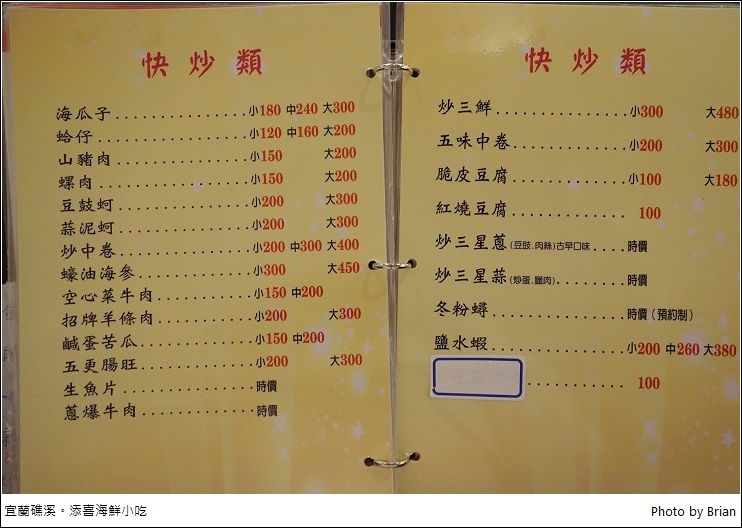 快炒類
海瓜子..............小180 中240 大300
蛤仔................小120 中160 大200
山豬肉..............小150 大200
螺肉................小150 大200
豆鼓蚵..............小200 大300
蒜泥蚵..............小200 大300
炒中卷..............小200 中300 大400
蠔油海參............小300 大450
空心菜牛肉..........小150 中200
招牌羊條肉..........小200 大300
鹹蛋苦瓜............小150 中200
五更腸旺............小200 大300
生魚片..............時價
蔥爆牛肉............時價
快炒類
炒三鮮..............小300 大480
五味中卷............小200 大300
脆皮豆腐............小100 大180
紅燒豆腐............100
炒三星蔥(豆豉.肉絲)古早口味....時價
炒三星蒜(炒蛋.臘肉).......時價
冬粉蟳..............時價(預約制)
鹽水蝦..............小200 中260 大380
............100
宜蘭礁溪。添喜海鮮小吃
Photo by Brian